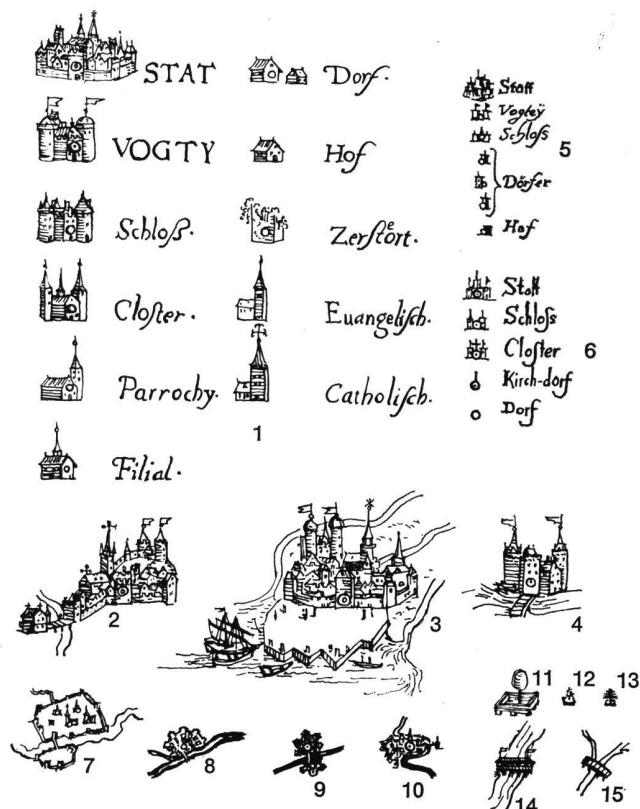 STAT
VOGTY
Schloß.
Closter.
Parrochy.
Filial.
Dorf.
Hof
Zerstoͤrt.
Euangelisch.
Catholisch.
1
Statt
Vogteÿ
Schloss
5
Dörfer
Hof
Statt
Schloss
Closter 6
Kirch-dorf
Dorf
2
3
4
7
8
9
10
11
12
13
14
15